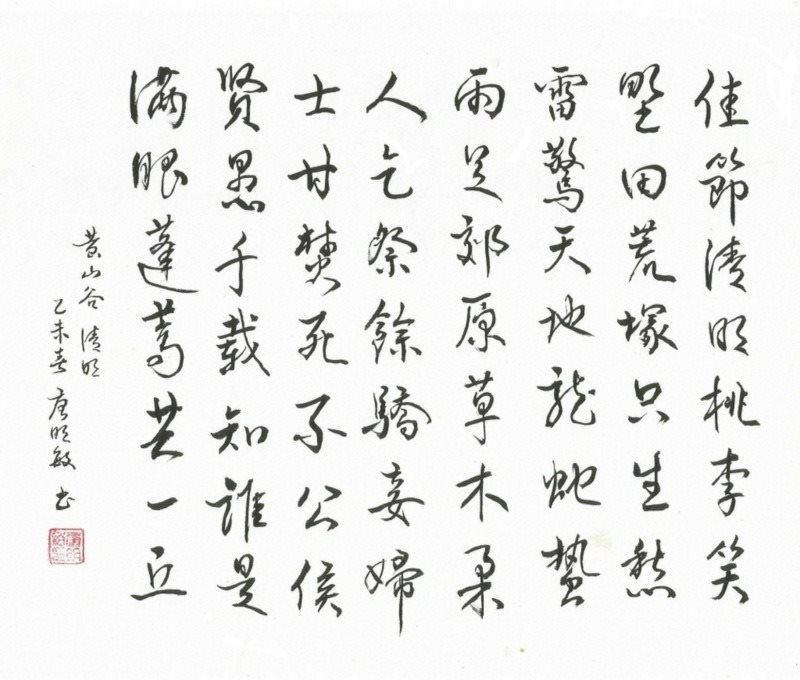 佳節清明桃李笑
野田荒塚只生愁
雷驚天地龍蛇蟄
雨足郊原草木柔
人乞祭餘驕妾婦
士甘焚死不公侯
賢愚千載知誰是
滿眼蓬蒿共一丘
黃山谷 清明
乙未春 唐明敏书